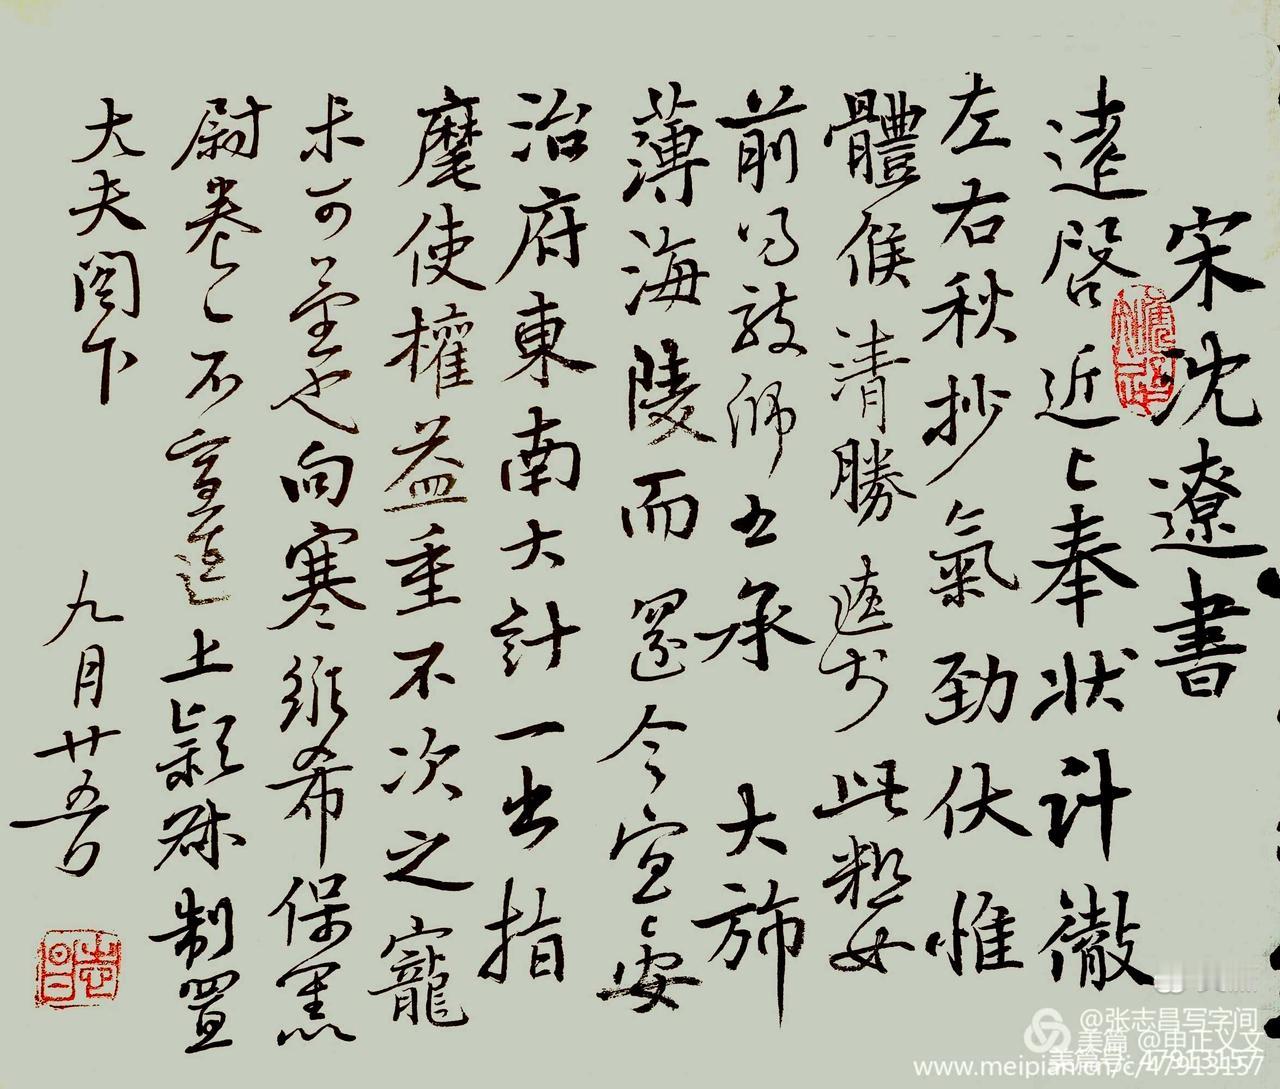 宋沈遼書
遼啓近〻奉状计徹
左右秋抄氣勁伏惟
體候清勝遼於此粗安
前得敖師上承大旆
薄海陵而還今宜〻安
治府東南大計一出指
麾使權益重不次之寵
未可量也向寒維希保熏
尉眷〻不宣遼上颖叔制置
大夫阁下 九月廿五日
志昌
@张志昌写字间
美篇 @申正义文
美篇号：47913157
www.meipian.cn/c/47913157